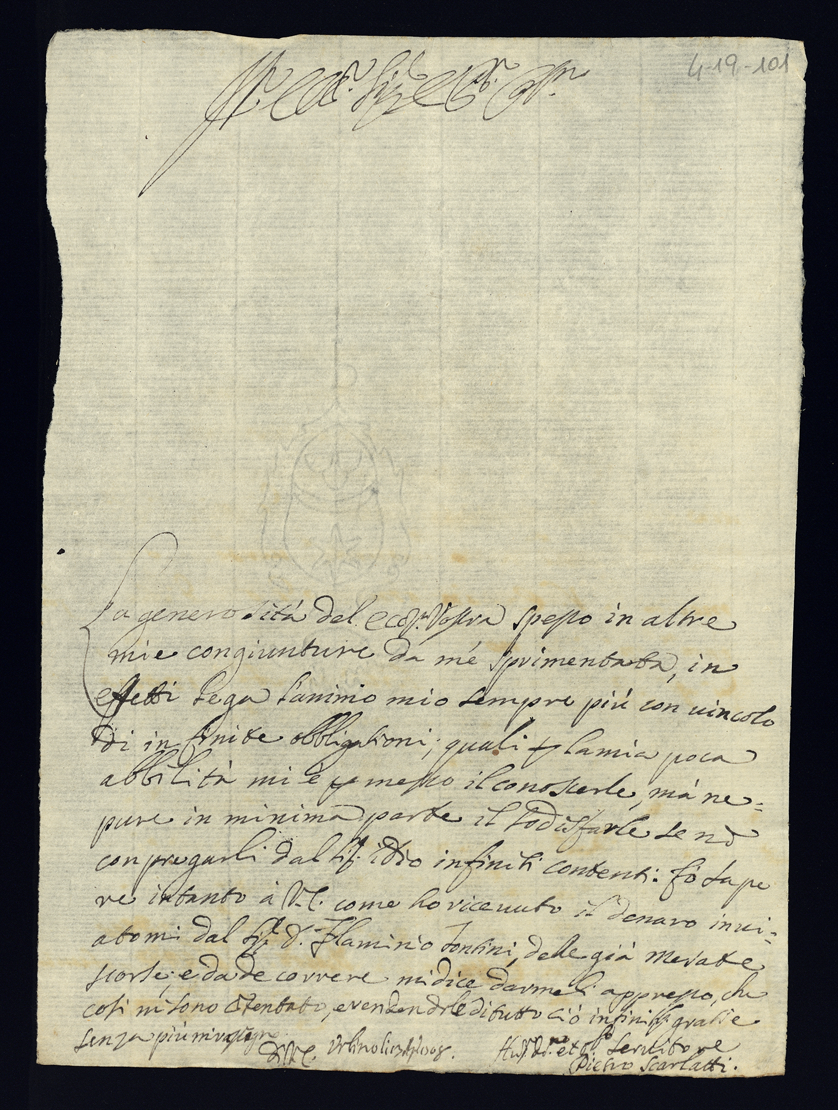 4-19-101
Ill.mo Sig.r
La generosità del ecc.a Vostra spesso in altre
mie congiunture da mè sprimentata, in
effetti lega l'animo mio sempre più con uincolo
di infinite obbligationi; quali p la mia poca
abbilità mi è permesso il conoscerle, mà ne=
pure in minima parte il sodisfarle se nò
con pregarli dal Sig. Idio infiniti contenti: fò sape
re intanto à V.E. come ho riceuuto il denaro inui=
atomi dal Sig. D. Flaminio, delle già mesate
scorse; e da de correre mi dice darmeli appresso, che
così ni sono contentato, e rendendole di tutto ciò infiniss. gratie
senza più mi
D.V.E. Urbino li 1708. Hu. Di. et Servitore
Pietro Scarlatti.